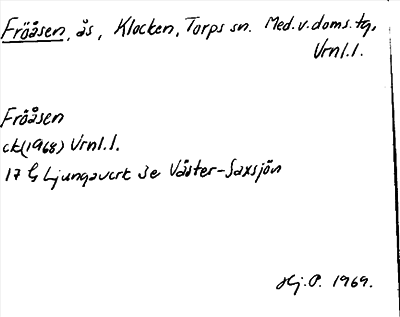 Fröåsen, ås, Klocken, Torps sn. Med. v. doms. tg,
Vrnl. l.
Fröåsen
ek (1968) Vrnl. l.
17 G Ljungaverk se Väster-Saxsjön
Hj. P. 1969.